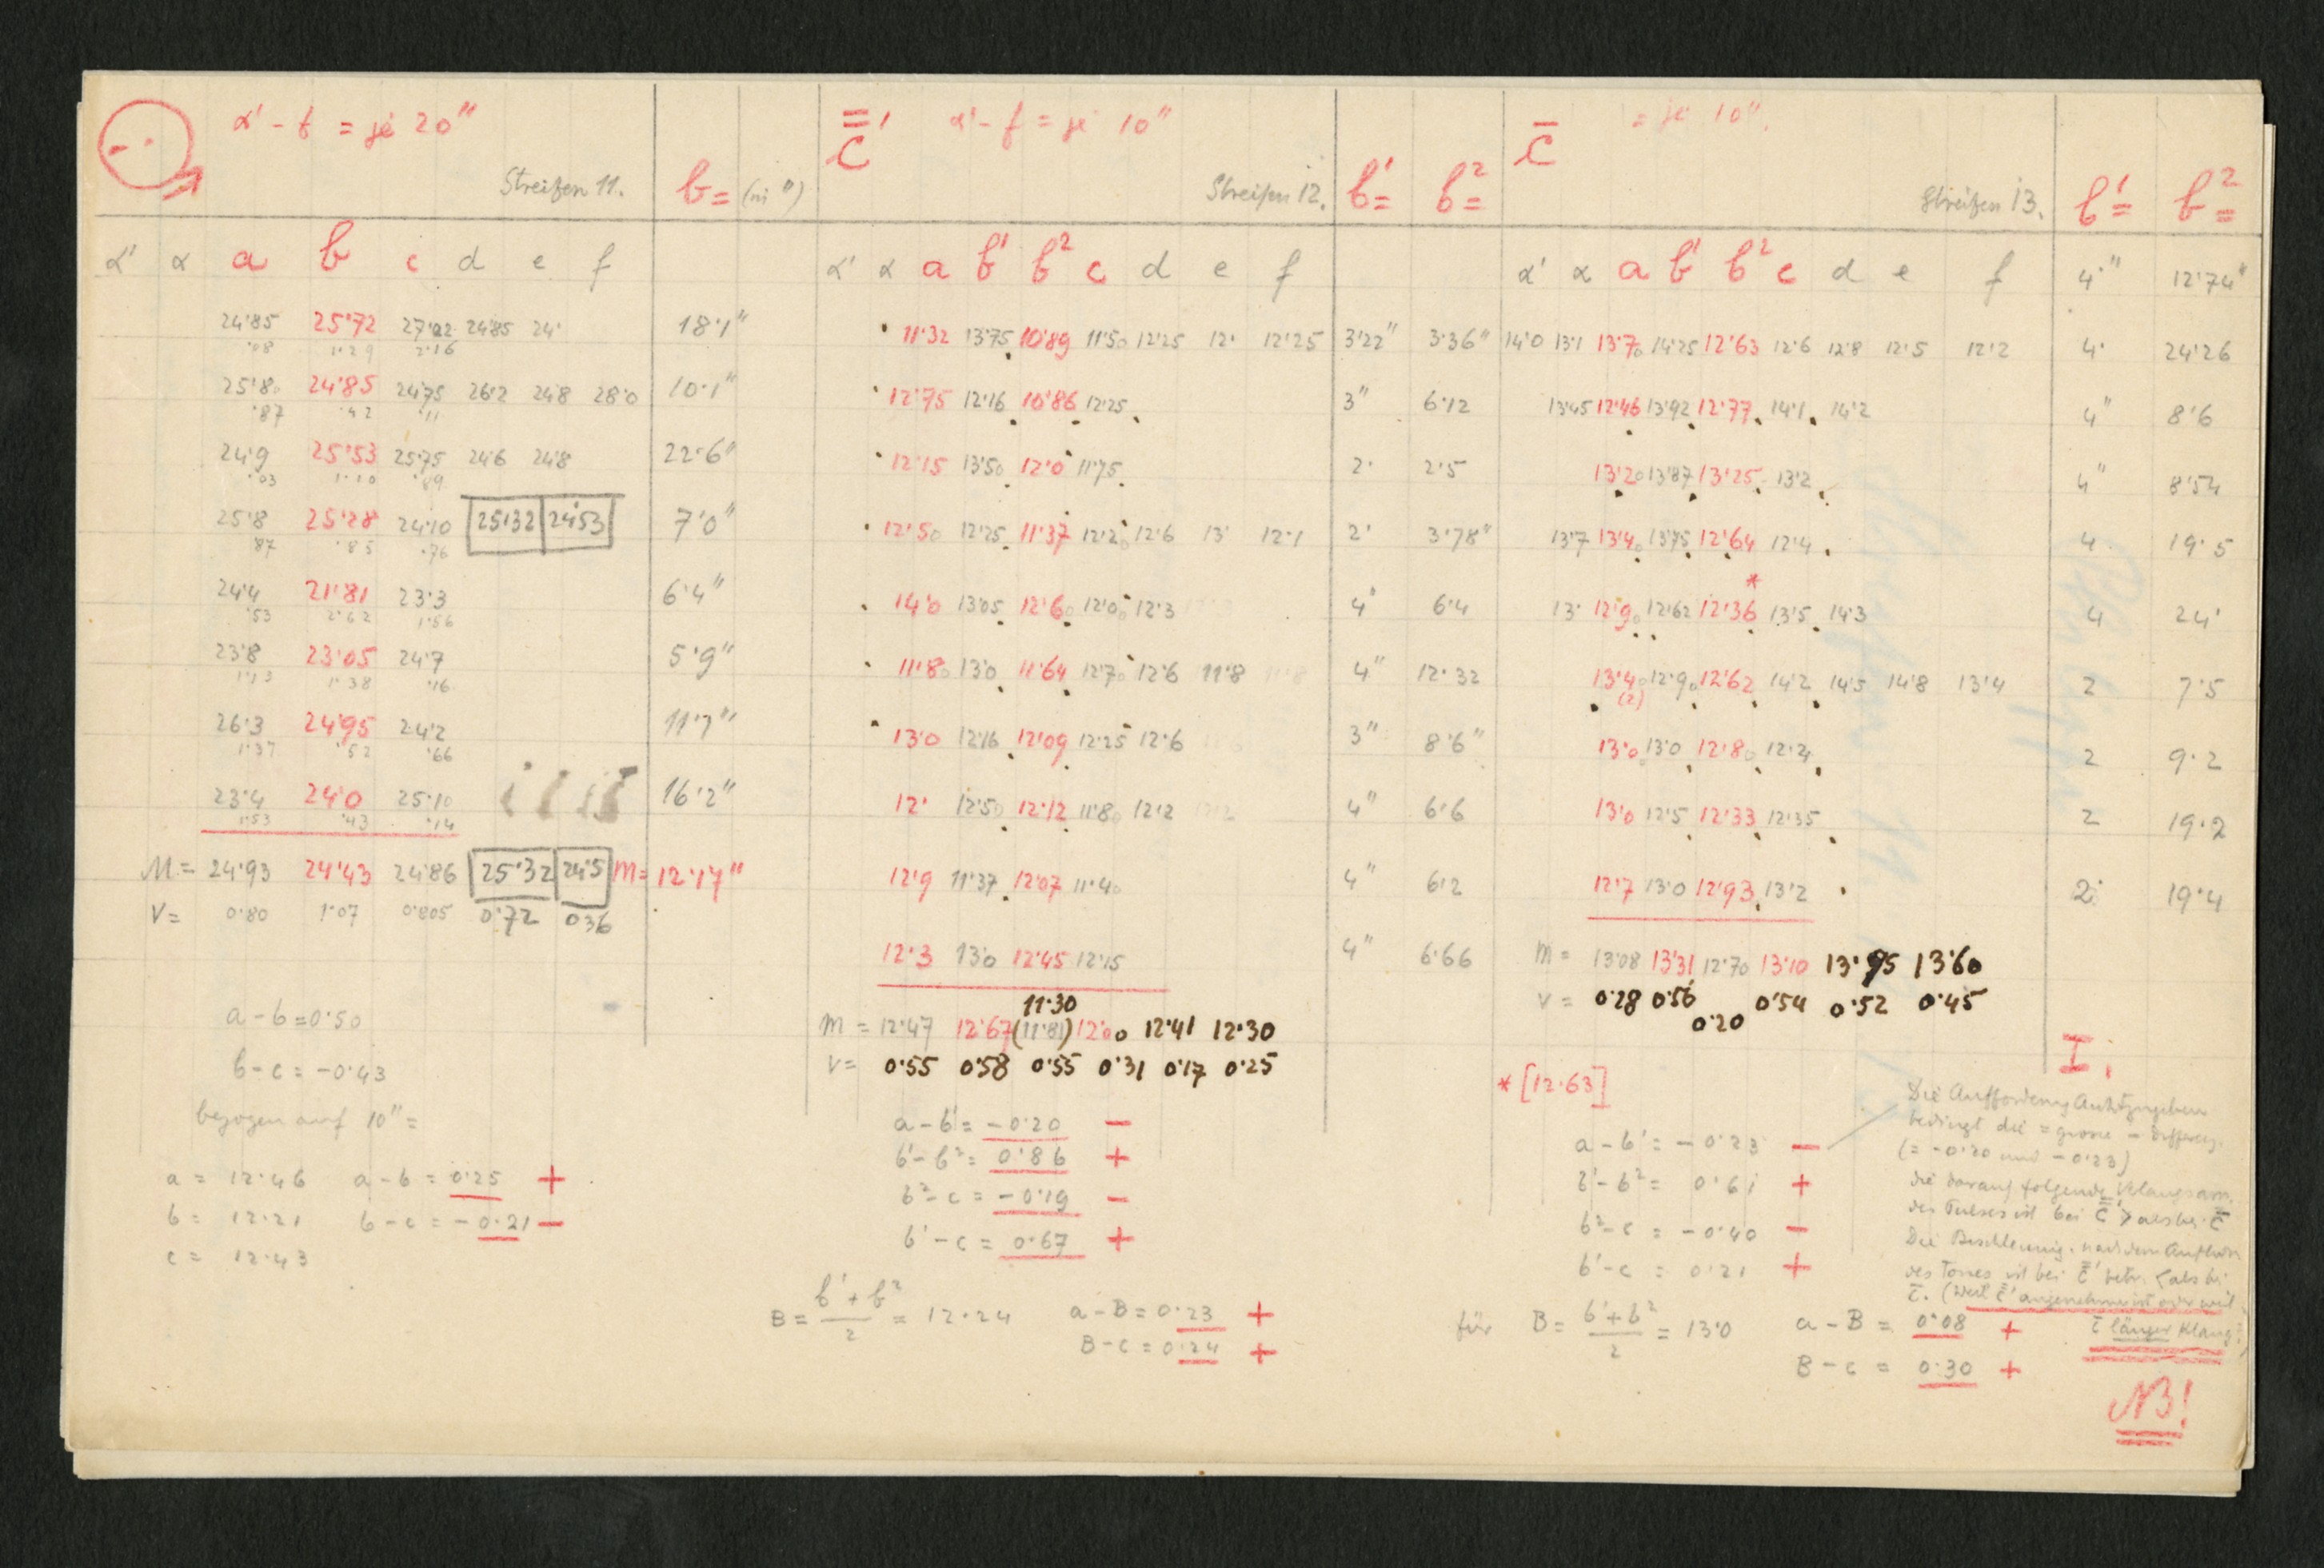 α' - f = je 20"
Streifen 11.
b = (in ")
α' α a b c d e f
24'85 25'72 27'22 24'85 24' 18'1"
'08 1'29 2'16
25'80 24'85 24'75 26'2 24'8 28'0 10'1"
'87 '42 '11
24'9 25'53 25'75 24'6 24'8 22'6"
'03 1'10 '89
25'8 25'28 24'10 25'32 24'53 7'0"
'87 '85 '76
24'4 21'81 23'3 6'4"
'53 2'62 1'56
23'8 23'05 24'7 5'9"
1'13 1'38 '16
26'3 24'95 24'2 11'7"
1'37 '52 '66
23'4 24'0 25'10 16'2"
1'53 '43 '14
M = 24'93 24'43 24'86 25'32 24'5 M = 12'17"
V = 0'80 1'07 0'805 0'72 036
a - b = 0'50
b - c = -0'43
bezogen auf 10" =
a = 12'46 a - b = 0'25 +
b = 12'21 b - c = -0'21 -
c = 12'43
c̿' α' - f = je 10"
Streifen 12. b¹ = b² =
α' α a b¹ b² c d e f
11'32 13'75 10'89 11'50 12'25 12' 12'25 3'22" 3'36"
12'75 12'16 10'86 12'25 3" 6'12
12'15 13'50 12'0 11'75 2' 2'5
12'50 12'25 11'37 12'20 12'6 13' 12'1 2' 3'78"
14'0 13'05 12'60 12'00 12'3 4" 6'4
11'80 13'0 11'64 12'70 12'6 11'8 11'8 4" 12'32
13'0 12'16 12'09 12'25 12'6 3" 8'6"
12' 12'50 12'12 11'80 12'2 12'2 4" 6'6
12'9 11'37 12'07 11'40 4" 6'2
12'3 13'0 12'45 12'15 4" 6'66
11'30
M = 12'47 12'67 (11'81) 12'00 12'41 12'30
V = 0'55 0'58 0'55 0'31 0'17 0'25
a - b' = -0'20 -
b' - b² = 0'86 +
b² - c = -0'19 -
b' - c = 0'67 +
B = b' + b² / 2 = 12'24 a - B = 0'23 +
B - c = 0'24 +
c̄ = je 10".
Streifen 13. b¹ = b² =
α' α a b¹ b² c d e f 4'" 12'74"
14'0 13'1 13'70 14'25 12'63 12'6 12'8 12'5 12'2 4' 24'26
13'45 12'46 13'92 12'77 14'1 14'2 4" 8'6
13'20 13'87 13'25 13'2 4" 8'54
13'7 13'40 13'75 12'64 12'4 4 19'5
*
13' 12'90 12'62 12'36 13'5 14'3 4 24'
13'40 12'90 12'62 14'2 14'5 14'8 13'4 2 7'5
(2)
13'0 13'0 12'80 12'24 2 9'2
13'0 12'5 12'33 12'35 2 19'2
12'7 13'0 12'93 13'2 2 19'4
M = 13'08 13'31 12'70 13'10 13'95 13'60
V = 0'28 0'56 0'20 0'54 0'52 0'45
* [12'63]
a - b' = -0'23 -
b' - b² = 0'61 +
b² - c = -0'40 -
b' - c = 0'21 +
für B = b' + b² / 2 = 13'0 a - B = 0'08 +
B - c = 0'30 +
I.
Die Aufforderung
bedingt die = grosse - Differenz.
(= -0'20 und -0'23)
die darauf folgende
des Pulses ist bei c̿' > als bei c̄
Die nach dem Aufhören
des Tones ist bei c̿' < als bei
c̄. (weil c̿' angenehmer ist oder weil
c̄ länger klang?)
NB!